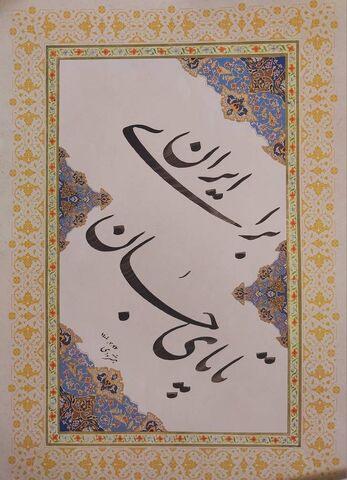 برای ایران
تا پای جان